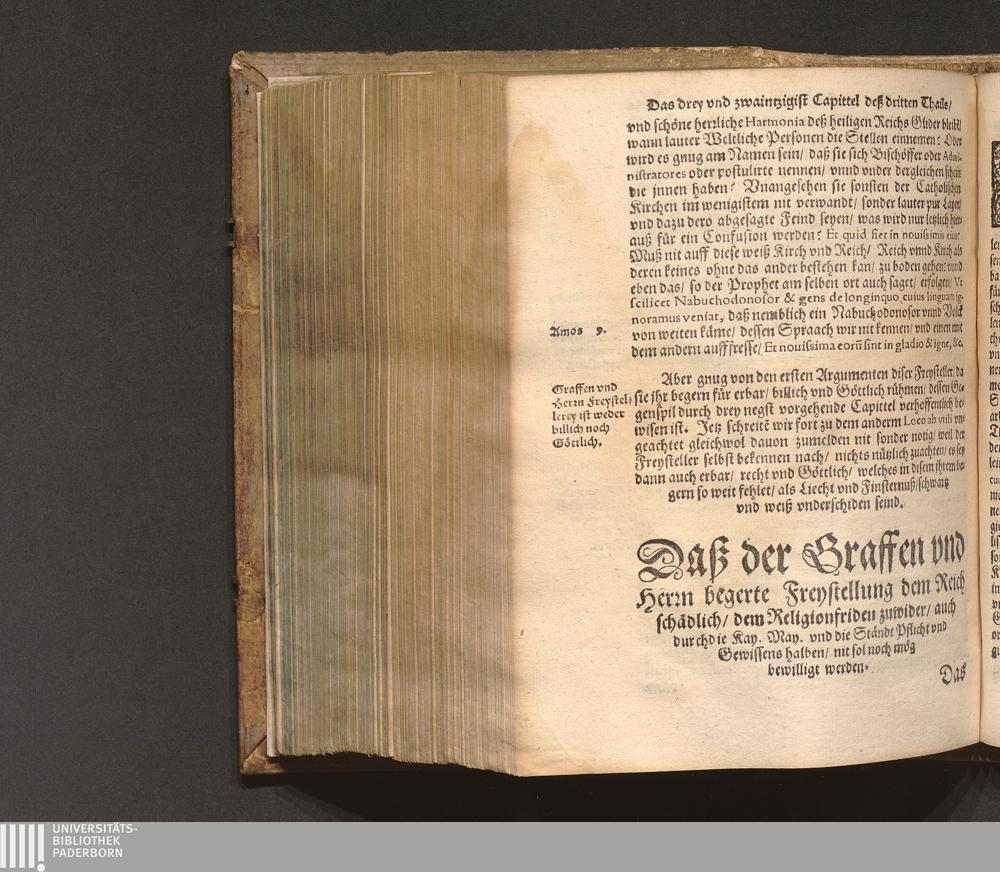 Das drey vnd zwaintzigist Capittel deß dritten Thails/
vnd schöne herrliche Harmonia deß heiligen Reichs Glider bleibt/
wann lauter Weltliche Personen die Stellen einnemen? Oder
wird es gnug am Namen sein/ daß sie sich Bischöffer oder Admi-
nistratores oder postulirte nennen/ vnnd vnder dergleichen schein
die jnnen haben? Vnangesehen sie sonsten der Catholischen
Kirchen im wenigistem nit verwandt/ sonder lauter pur Layen/
vnd dazu dero abgesagte Feind seyen/ was wird nur letzlich hier-
auß für ein Confusion werden? Et quid fiet in nouissimis eius?
Muß nit auff diese weiß Kirch vnd Reich/ Reich vnnd Kirch als
deren keines ohne das ander bestehen kan/ zu boden gehen? vnnd
eben das/ so der Prophet am selben ort auch saget/ erfolgen/ Vt
scilicet Nabuchodonosor & gens de longinquo cuius linguam ig-
noramus veniat, daß nemblich ein Nabuchodonosor vnnd Volck
Amos 9.
von weiten käme/ dessen Spraach wir nit kennen/ vnd einen mit
dem andern auffresse/ Et nouissima eorũ sint in gladio & igne, &c.
Aber gnug von den ersten Argumenten diser Freysteller/ da
Graffen vnd
Herrn Freystel-
lerey ist weder
billich noch
Göttlich.
sie jhr begern für erbar/ billich vnd Göttlich rühmen/ dessen Ge-
genspil durch drey negst vorgehende Capittel verhoffentlich be-
wisen ist. Jetz schreitẽ wir fort zu dem anderm Loco ab vtili vn-
geachtet gleichwol dauon zumelden nit sonder notig/ weil der
Freysteller selbst bekennen nach/ nichts nützlich zuachten/ es sey
dann auch erbar/ recht vnd Göttlich/ welches in disem jhrem be-
gern so weit fehlet/ als Liecht vnd Finsternuß/ schwartz
vnd weiß vnderschiden seind.
Daß der Graffen vnd
Herrn begerte Freystellung dem Reich
schädlich/ dem Religionfriden zuwider/ auch
durch die Kay. May. vnd die Ständt Pflicht vnd
Gewissens halben/ nit sol noch mög
bewilligt werden.
Das
UNIVERSITÄTS-
BIBLIOTHEK
PADERBORN